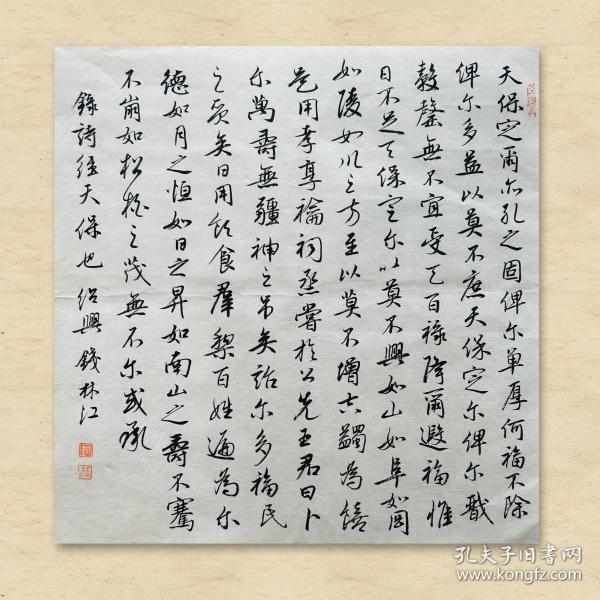 天保定爾亦孔之固俾尔單厚何福不除
俾尔多益以莫不庶天保定尔俾尔戩
穀罄無不宜受天百祿降爾遐福惟
日不足天保定尔以莫不興如山如阜如岡
如陵如川之方至以莫不增吉蠲為饎
是用孝享禴祠烝嘗於公先王君曰卜
尔萬壽無疆神之吊矣詒尔多福民
之質矣日用飲食羣黎百姓遍為尔
德如月之恒如日之昇如南山之壽不騫
不崩如松柏之茂無不尔或承
錄詩經天保也 紹興錢林江
孔夫子旧书网
www.kongfz.com